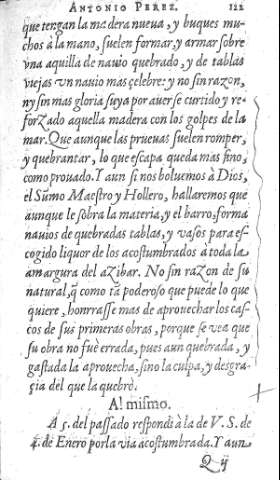 ANTONIO PEREZ. 122
que tengan la madera nueua, y buques mu-
chos à la mano, suelen formar, y armar sobre
vna aquilla de nauio quebrado, y de tablas
viejas vn nauio mas çelebre: y no sin razon,
ny sin mas gloria suya por auerse curtido y re-
forzado aquella madera con los golpes de la
mar. Que aunque las prueuas suelen romper,
y quebrantar, lo que escapa queda mas fino,
como prouado. Y aun si nos boluemos à Dios,
el Sũmo Maestro y Hollero, hallaremos que
aunque le sobra la materia, y el barro, forma
nauios de quebradas tablas, y vasos para es-
cogido liquor de los acostumbrados à toda la
amargura del azibar. No sin razon de su
natural, q̃ como tã poderoso que puede lo que
quiere, honrrasse mas de aprouechar los cas-
cos de sus primeras obras, porque se vea que
su obra no fuè errada, pues aun quebrada, y
gastada la aprouecha, sino la culpa, y desgra-
çia del que la quebrò.
Al mismo.
A 5. del passado respondi à la de V. S. de
4. de Enero por la via acostumbrada. Y aun
Q ij